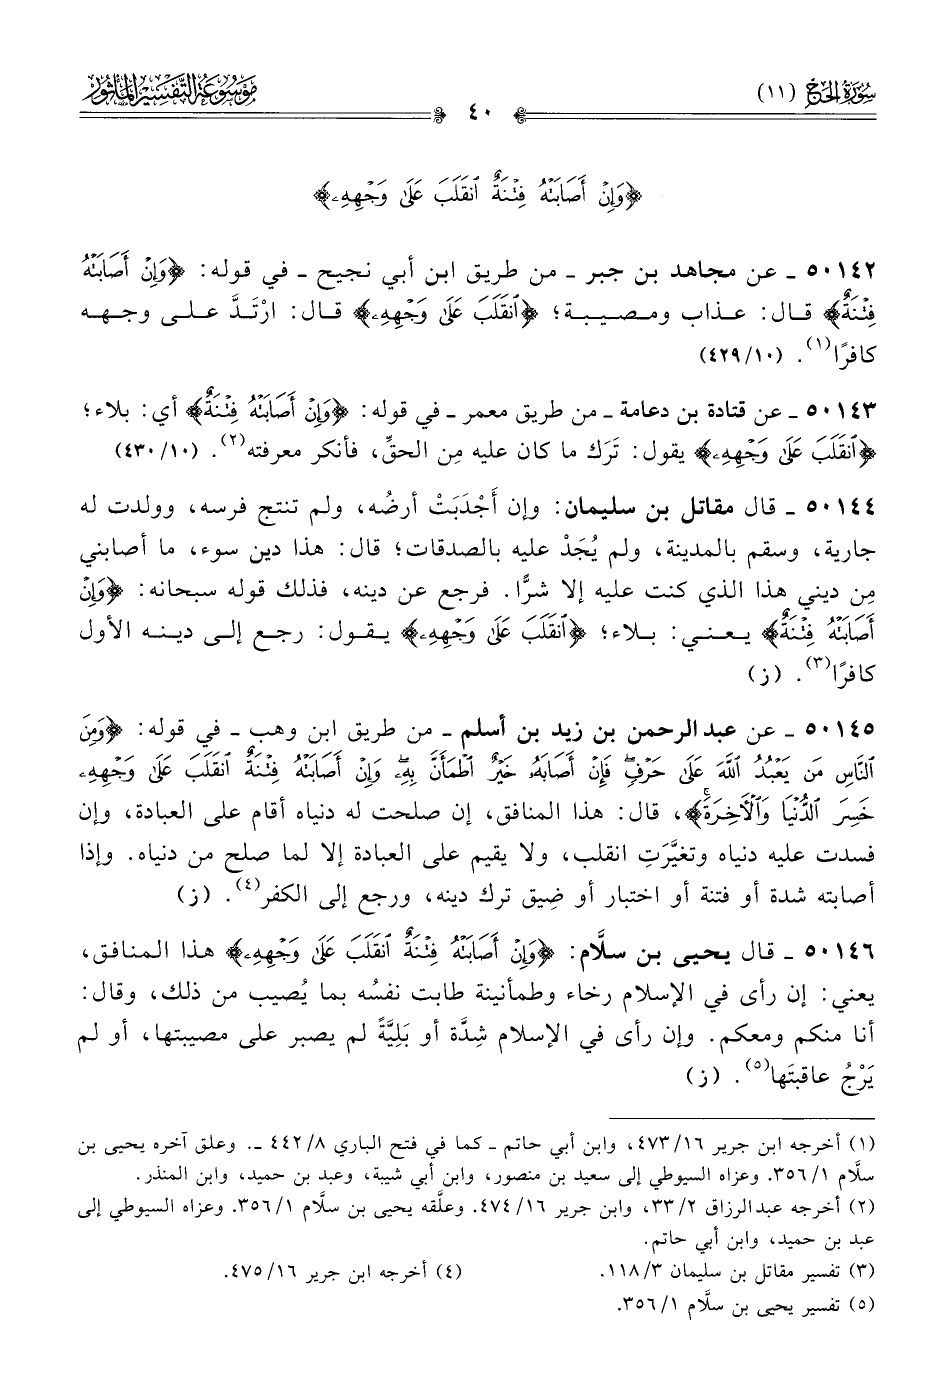 سُورَةُ الحَجّ (١١)
٤٠
مَوْسُوعَةُ التَّفْسِيْرِ المَأْثُور
﴿وَإِنْ أَصَابَتْهُ فِتْنَةٌ ٱنقَلَبَ عَلَىٰ وَجْهِهِۦ﴾
٥٠١٤٢ ـ عن مجاهد بن جبر ـ من طريق ابن أبي نجيح ـ في قوله: ﴿وَإِنْ أَصَابَتْهُ
فِتْنَةٌ﴾ قال: عذاب ومصيبة؛ ﴿ٱنقَلَبَ عَلَىٰ وَجْهِهِۦ﴾ قال: ارْتَدَّ على وجهه
كافرًا(١). (١٠/٤٢٩)
٥٠١٤٣ ـ عن قتادة بن دعامة ـ من طريق معمر ـ في قوله: ﴿وَإِنْ أَصَابَتْهُ فِتْنَةٌ﴾ أي: بلاء؛
﴿ٱنقَلَبَ عَلَىٰ وَجْهِهِۦ﴾ يقول: تَرَك ما كان عليه مِن الحقِّ، فأنكر معرفته(٢). (١٠/٤٣٠)
٥٠١٤٤ ـ قال مقاتل بن سليمان: وإن أَجْدَبَتْ أرضُه، ولم تنتج فرسه، وولدت له
جارية، وسقم بالمدينة، ولم يُجَدْ عليه بالصدقات؛ قال: هذا دين سوء، ما أصابني
مِن ديني هذا الذي كنت عليه إلا شرًّا. فرجع عن دينه، فذلك قوله سبحانه: ﴿وَإِنْ
أَصَابَتْهُ فِتْنَةٌ﴾ يعني: بلاء؛ ﴿ٱنقَلَبَ عَلَىٰ وَجْهِهِۦ﴾ يقول: رجع إلى دينه الأول
كافرًا(٣). (ز)
٥٠١٤٥ ـ عن عبدالرحمن بن زيد بن أسلم ـ من طريق ابن وهب ـ في قوله: ﴿وَمِنَ
ٱلنَّاسِ مَن يَعْبُدُ ٱللَّهَ عَلَىٰ حَرْفٍۖ فَإِنْ أَصَابَهُۥ خَيْرٌ ٱطْمَأَنَّ بِهِۦۖ وَإِنْ أَصَابَتْهُ فِتْنَةٌ ٱنقَلَبَ عَلَىٰ وَجْهِهِۦ
خَسِرَ ٱلدُّنْيَا وَٱلْأَخِرَةَۚ﴾، قال: هذا المنافق، إن صلحت له دنياه أقام على العبادة، وإن
فسدت عليه دنياه وتغيَّرَتِ انقلب، ولا يقيم على العبادة إلا لما صلح من دنياه. وإذا
أصابته شدة أو فتنة أو اختبار أو ضِيق ترك دينه، ورجع إلى الكفر(٤). (ز)
٥٠١٤٦ ـ قال يحيى بن سلَّام: ﴿وَإِنْ أَصَابَتْهُ فِتْنَةٌ ٱنقَلَبَ عَلَىٰ وَجْهِهِۦ﴾ هذا المنافق،
يعني: إن رأى في الإسلام رخاء وطمأنينة طابت نفسُه بما يُصيب من ذلك، وقال:
أنا منكم ومعكم. وإن رأى في الإسلام شِدَّة أو بَلِيَّةً لم يصبر على مصيبتها، أو لم
يَرْجُ عاقبتَها(٥). (ز)
(١) أخرجه ابن جرير ١٦/٤٧٣، وابن أبي حاتم ـ كما في فتح الباري ٨/٤٤٢ ـ. وعلق آخره يحيى بن
سلَّام ١/٣٥٦. وعزاه السيوطي إلى سعيد بن منصور، وابن أبي شيبة، وعبد بن حميد، وابن المنذر.
(٢) أخرجه عبدالرزاق ٢/٣٣، وابن جرير ١٦/٤٧٤. وعلَّقه يحيى بن سلَّام ١/٣٥٦. وعزاه السيوطي إلى
عبد بن حميد، وابن أبي حاتم.
(٣) تفسير مقاتل بن سليمان ٣/١١٨. (٤) أخرجه ابن جرير ١٦/٤٧٥.
(٥) تفسير يحيى بن سلَّام ١/٣٥٦.